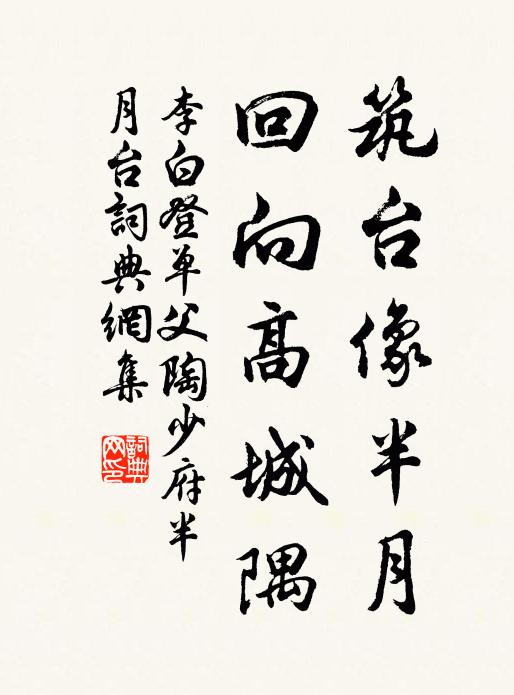 筑台像半月
回向高城隅
李白登单父陶少府半
月台詞典網集
詞典网印